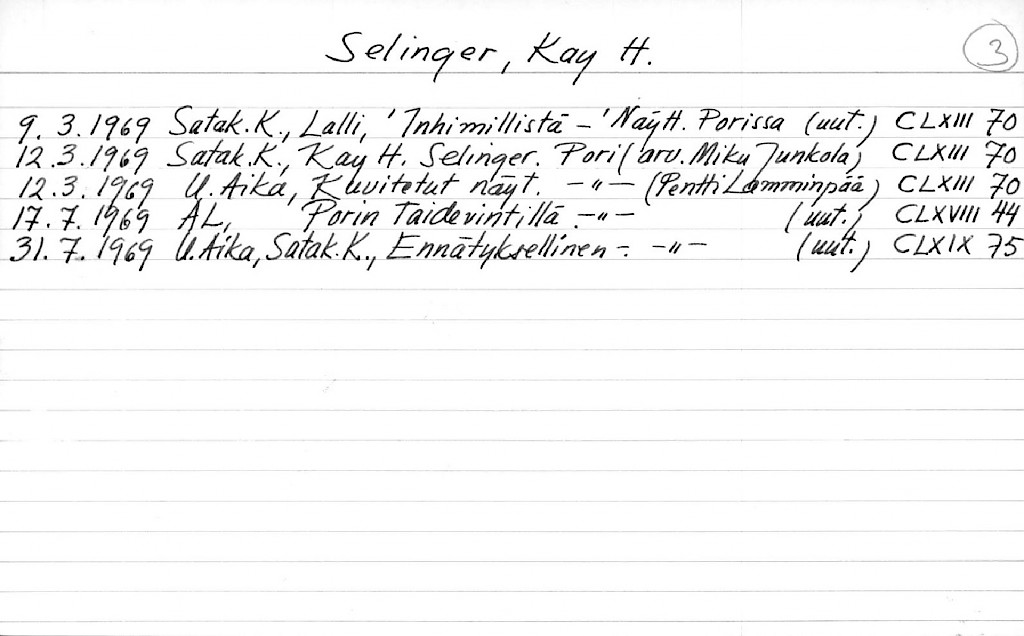 Selinger, Kay H. 3
9. 3. 1969 Satak. K., Lalli, 'Inhimillistä –' Näytt. Porissa (uut.) CLXIII 70
12. 3. 1969 Satak. K., Kay H. Selinger. Pori (arv. Miku Junkola) CLXIII 70
12. 3. 1969 U. Aika, Kuvitetut näyt. –"– (Pentti Lamminpää) CLXIII 70
17. 7. 1969 AL, Porin Taidevintillä –"– (uut.) CLXVIII 44
31. 7. 1969 U. Aika, Satak. K., Ennätyksellinen –"– (uut.) CLXIX 75